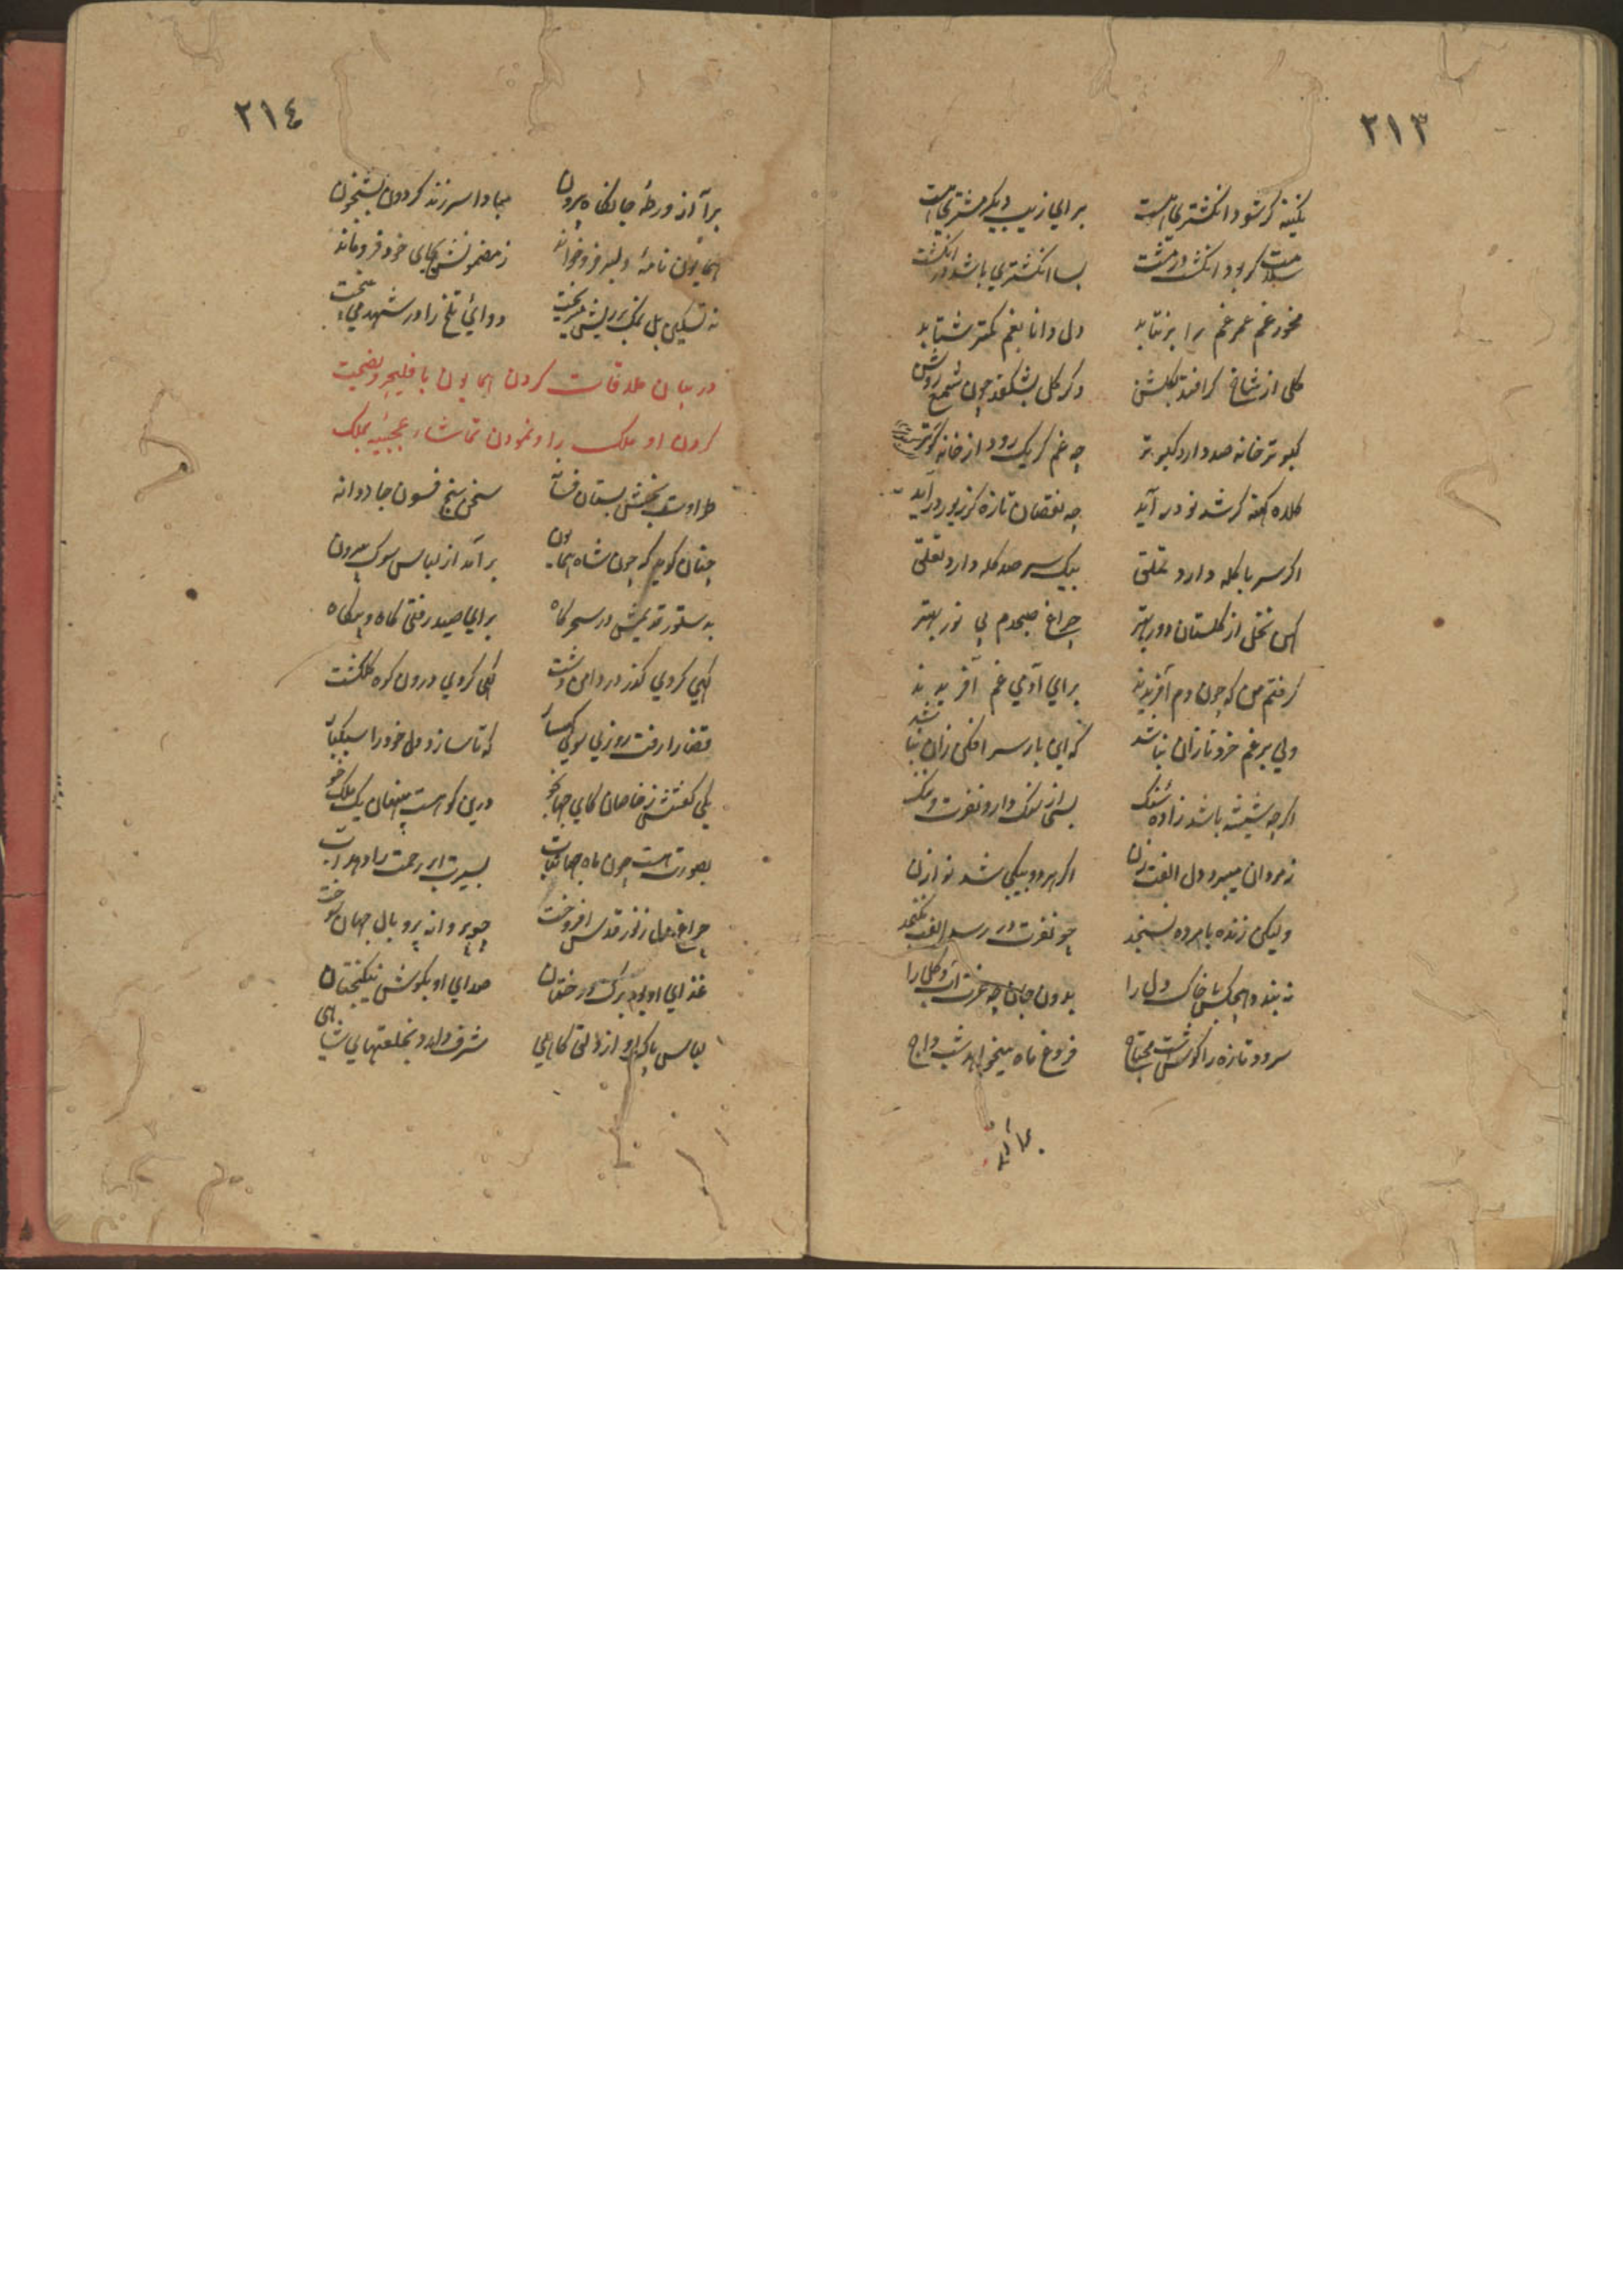 ٢١٣
نگینه گر شود انگشتری هست برای زیب دیگر مشتری هست
سلامت گر بود انگشت در مشت بسا انگشتری باشد در انگشت
مخور غم عمر غم را بر نتابد دل دانا بغم کمتر شتابد
گلی از شاخ گر افتد بگلشن دگر گل بشکفد چون شمع روشن
کبوتر خانه صد دارد کبوتر چه غم گر یک رود از خانه
کلاه کهنه گر شد نو در آید چه نقصان تازه گر زیور در آید
اگر سر با کله دارد تملق بیک سر صد کله دارد تعلق
کهن نخل از گلستان دور بهتر چراغ صبحدم بی نور بهتر
گرفتم من که چون دم آفریدند برای آدمی غم آفریدند
ولی بر غم خرد نازان نباشد که این بار سر افکن زان نباشد
اگرچه شیشه باشد زاده سنگ بسی از سنگ دارد نفرت و ننگ
ز مردان میبرد دل الفت زن اگر هر دو بیکی شد نوازن
ولیکن زنده با مرده نسنجد چو نفرت در رسد الفت نگنجد
نه بندد هیچکس با خاک دل را بدون جان چه عزت آب و گل را
سرود تازه را گوشست محتاج فروغ ماه میخواهد شب داج
برآ از
٢١٤
برآ از ورطهٔ جانکاه بیرون مبادا سر زند گردون شبیخون
همایون نامهٔ دلبر فرو خواند ز مضمونش بجای خود فرو ماند
نه تسکین بل نمک بر ریش میریخت دوائی تلخ را در شهد می بیخت
در بیان ملاقات کردن همایون با و نصیحت
کردن او ملک را و نمودن تماشاء عجیبه بملک
طراوت بخش بستان فسانه سخن سنج فسون جادوانه
چنان گوید که چون شاه همایون برآمد از لباس سوک بیرون
بدستور قدیمش در سحرگاه برای صید رفتی گاه و بیگاه
گهی کردی گذر در دامن دشت گهی کردی درون کوه گلگشت
قضا را رفت روزی سوی کهسار که تا سازد دل خود را سبکبار
یکی گفتش ز خاصان کای جهانجو درین کوهست پنهان یک ملک خو
بصورت هست چون ماه جهانتاب بسیرت ابر رحمت را دهد آب
چراغ دل ز نور قدس افروخت چو پروانه پر و بال جهان سوخت
غذای او بود برگ درختان صدای او بگوش نیکبختان
لباس پاک او از دلق کاهی شرف دارد بخلعتهای شاهی